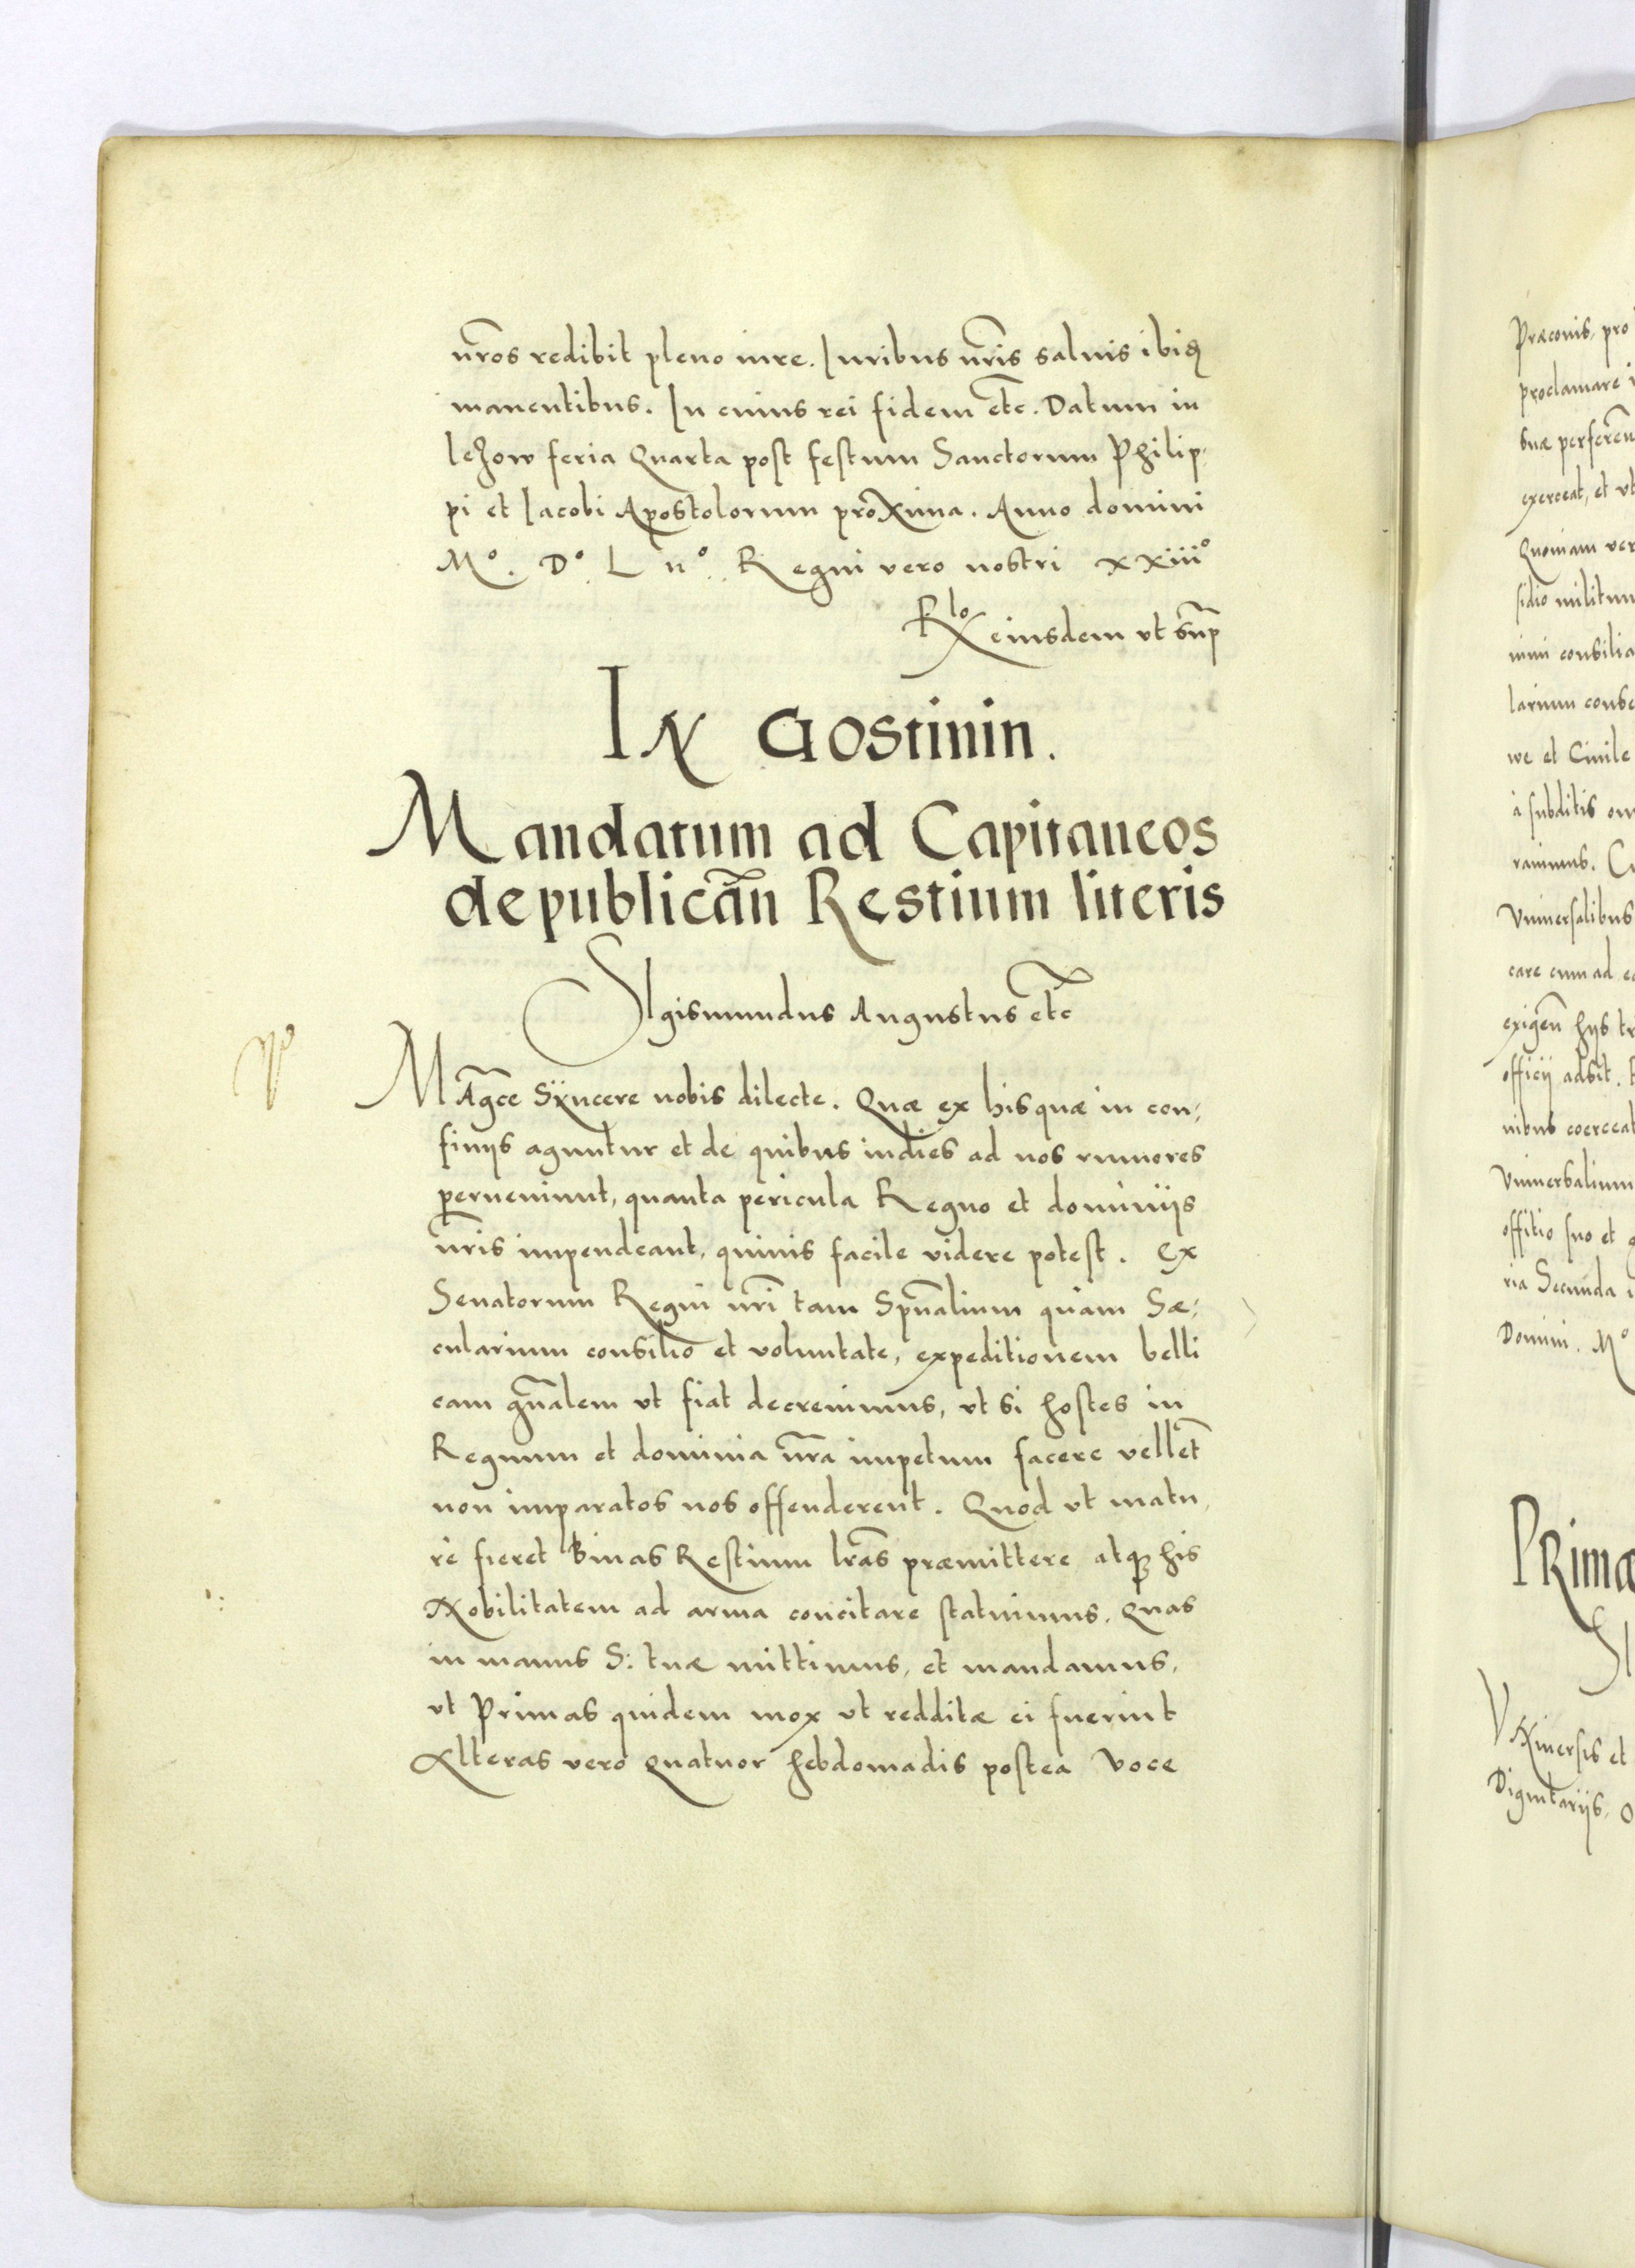 nr̃os redibit pleno iure. Iuribus nr̃is saluis ibiq
manentibus. In cuius rei fidem etc̃. Datum in
leʒow feria Quarta post festum Sanctorum Philip-
pi et Iacobi Apostolorum proxima. Anno domini
Mº. Dº. L iiº. Regni vero nostri xxiiiº
Rlo eiusdem vt sup̃
IN Gostinin.
Mandatum ad Capitaneos
de publican̄ Restium literis
SIgismundus Augustus etc̃
MAgc̃e Syncere nobis dilecte. Quæ ex his quæ in con-
finijs aguntur et de quibus indies ad nos rumores
perueniunt, quanta pericula Regno et dominijs
nr̃is impendeant, quiuis facile videre potest. Ex
Senatorum Regni nr̃i tam Spũalium quam Sæ-
cularium consilio et voluntate, expeditionem belli
cam gñalem vt fiat decreuimus, vt si hostes in
Regnum et dominia nr̃a impetum facere vellet̃
non imparatos nos offenderent. Quod vt matu-
re fieret binas Restium lr̃as præmittere atq3 his
Nobilitatem ad arma concitare statuimus. Quas
in manus S: tuæ mittimus, et mandamus,
vt Primas quidem mox vt redditæ ei fuerint
Alteras vero quatuor hebdomadis postea voce
Præconis, pro
proclamare i
suæ perferen̄
exerceat, et vt
Quoniam ver
sidio militum
nimi consilia
larium conse
we et Ciuile
a subditis om
ramus. Cu
Vniuersalibus
care cum ad ea
exigen̄ hijs tr
officij adsit.
nibus coerceat
Vniuersalium
offitio suo et q
ria Secunda i
Domini. Mº
PRima
SI
VNiuersis et
Dignitarijs, O